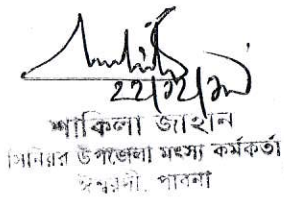 ২২/১২/২০
শাকিলা জাহান
সিনিয়র উপজেলা মৎস্য কর্মকর্তা
ঈশ্বরদী, পাবনা